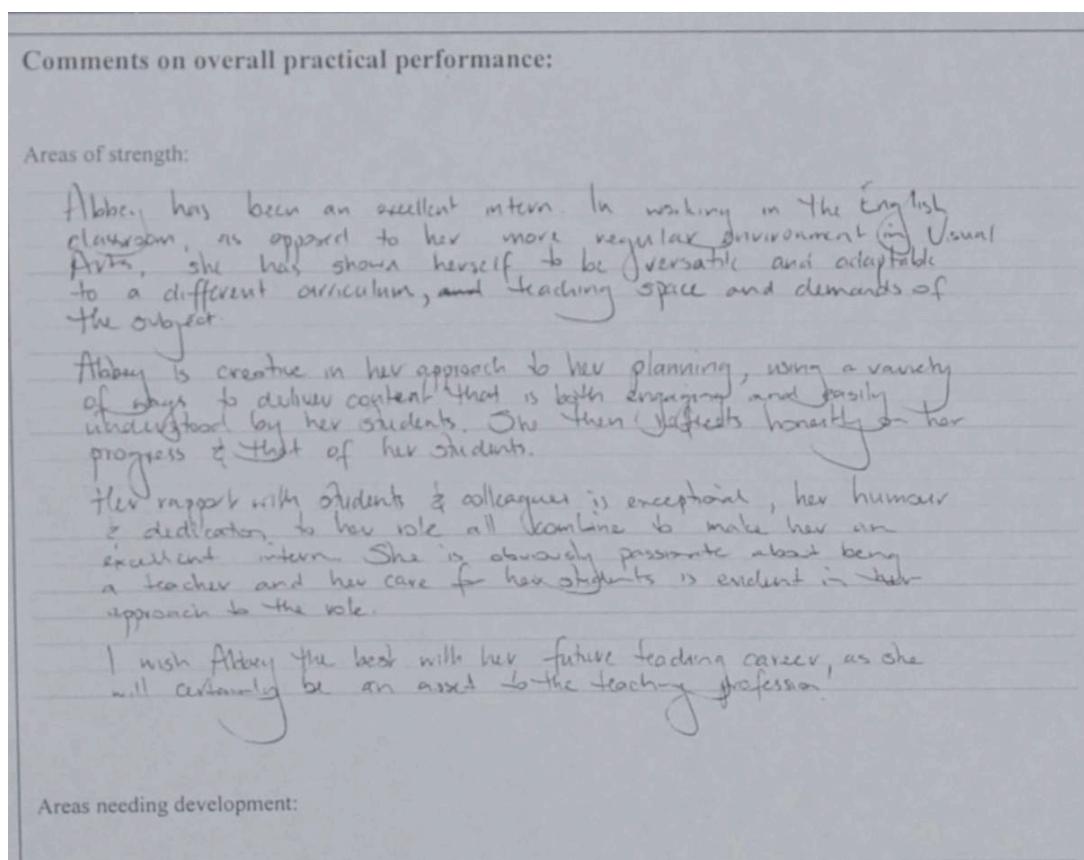 Comments on overall practical performance:
Areas of strength:
Abbey has been an excellent intern. In working in the English
classroom, as opposed to her more regular environment in Visual
Arts, she has shown herself to be versatile and adaptable
to a different curriculum, and teaching space and demands of
the subject.
Abbey is creative in her approach to her planning, using a variety
of ways to deliver content that is both engaging and easily
understood by her students. She then reflects honestly on her
progress & that of her students.
Her rapport with students & colleagues is exceptional, her humour
& dedication to her role all combine to make her an
excellent intern. She is obviously passionate about being
a teacher and her care for her students is evident in her
approach to the role.
I wish Abbey the best with her future teaching career, as she
will certainly be an asset to the teaching profession!
Areas needing development: